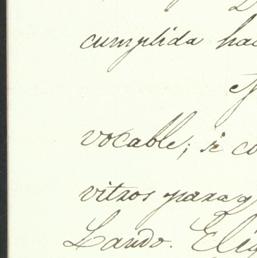 cumplida hac
vocable; si co
vitros para q
Lando. Elig